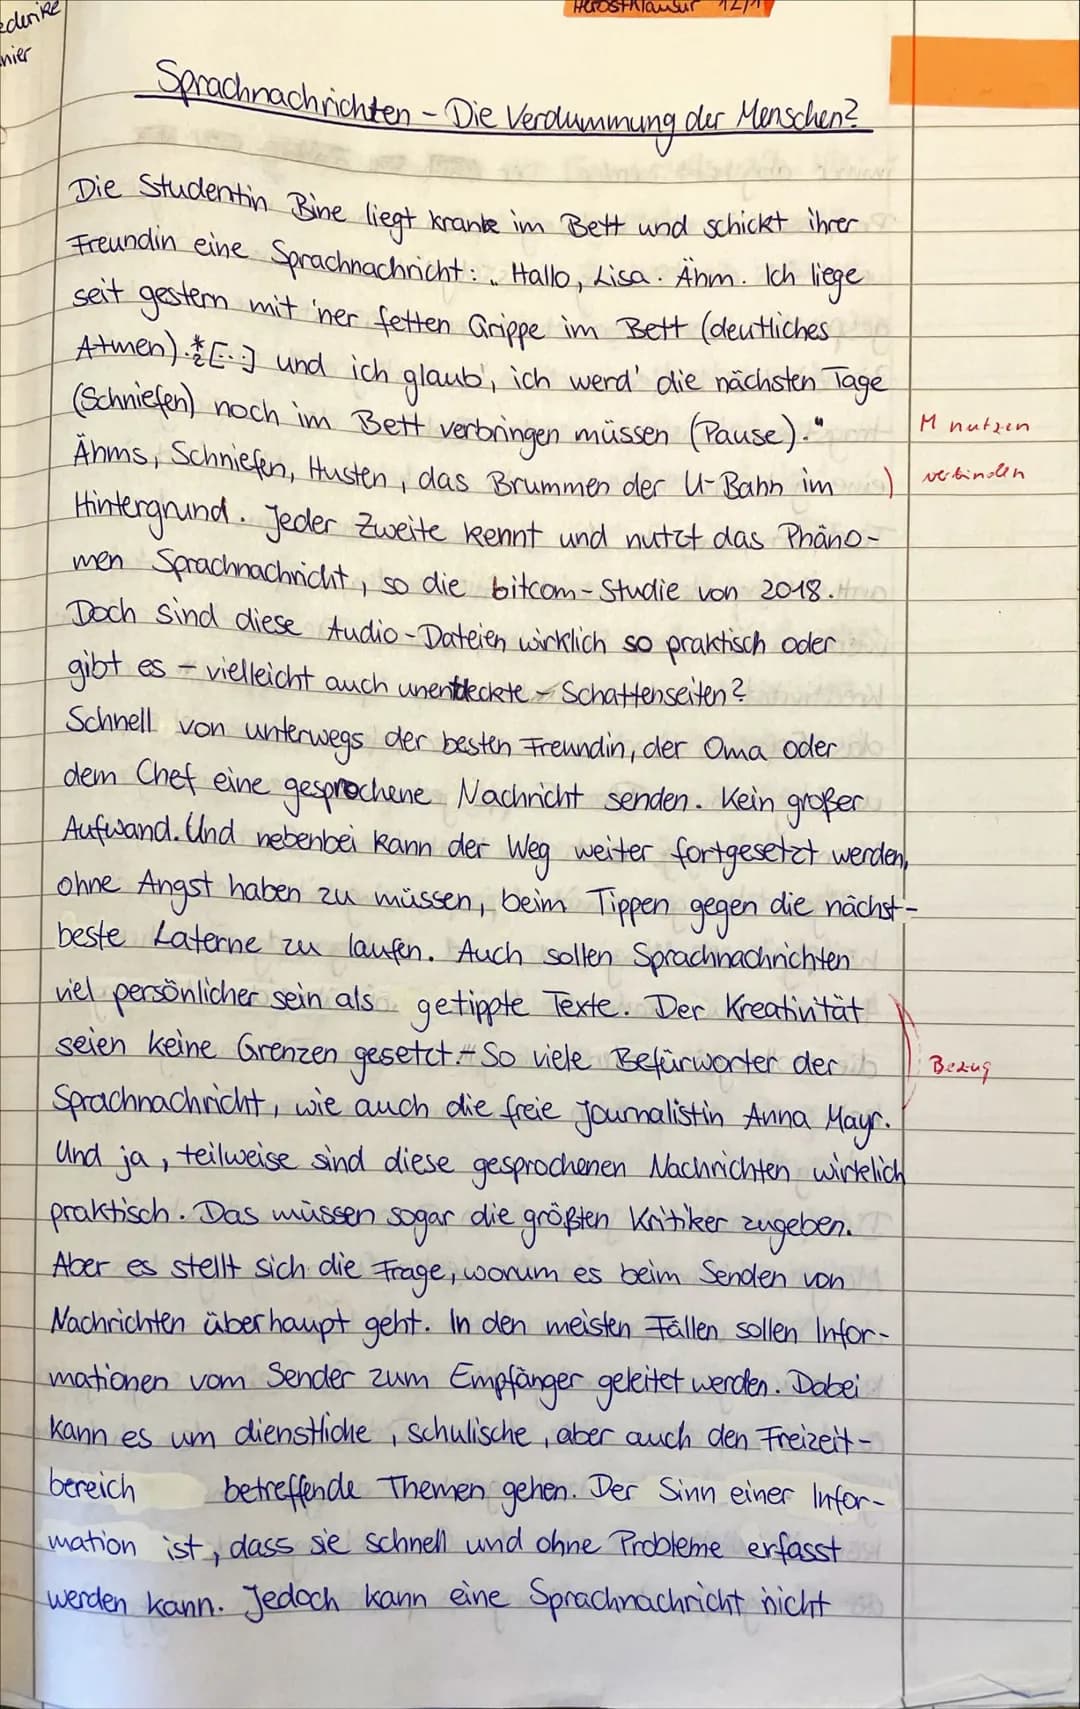 Herbstklausur 12/1
Sprachnachrichten - Die Verdummung der Menschen?
Die Studentin Bine liegt krank im Bett und schickt ihrer
Freundin eine Sprachnachricht: „Hallo, Lisa. Ähm. Ich liege
seit gestern mit 'ner fetten Grippe im Bett (deutliches
Atmen).*2 [...] und ich glaub', ich werd' die nächsten Tage
(Schniefen) noch im Bett verbringen müssen (Pause)."
M nutzen
Ähms, Schniefen, Husten, das Brummen der U-Bahn im
verbinden
Hintergrund. Jeder Zweite kennt und nutzt das Phäno-
men Sprachnachricht, so die bitcom-Studie von 2018.
Doch sind diese Audio-Dateien wirklich so praktisch oder
gibt es - vielleicht auch unentdeckte - Schattenseiten?
Schnell von unterwegs der besten Freundin, der Oma oder
dem Chef eine gesprochene Nachricht senden. Kein großer
Aufwand. Und nebenbei kann der Weg weiter fortgesetzt werden,
ohne Angst haben zu müssen, beim Tippen gegen die nächst-
beste Laterne zu laufen. Auch sollen Sprachnachrichten
viel persönlicher sein als getippte Texte. Der Kreativität
seien keine Grenzen gesetzt. - So viele Befürworter der
Bezug
Sprachnachricht, wie auch die freie Journalistin Anna Mayr.
Und ja, teilweise sind diese gesprochenen Nachrichten wirklich
praktisch. Das müssen sogar die größten Kritiker zugeben.
Aber es stellt sich die Frage, worum es beim Senden von
Nachrichten überhaupt geht. In den meisten Fällen sollen Infor-
mationen vom Sender zum Empfänger geleitet werden. Dabei
kann es um dienstliche, schulische, aber auch den Freizeit-
bereich betreffende Themen gehen. Der Sinn einer Infor-
mation ist, dass sie schnell und ohne Probleme erfasst
werden kann. Jedoch kann eine Sprachnachricht nicht